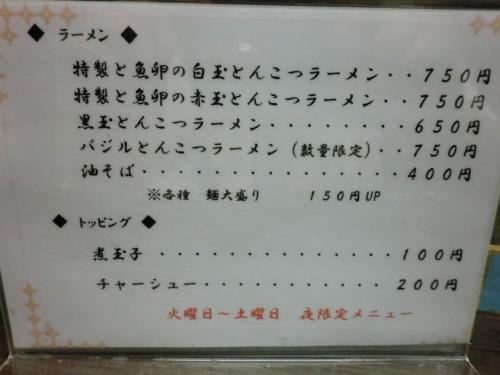 ◆ ラーメン ◆
特製と魚卵の白玉とんこつラーメン・・750円
特製と魚卵の赤玉とんこつラーメン・・750円
黒玉とんこつラーメン・・・・・・・・650円
バジルとんこつラーメン（数量限定）・・750円
油そば・・・・・・・・・・・・・・・400円
※各種 麺大盛り 150円UP
◆ トッピング ◆
煮玉子 ・・・・・・・・・・・・・・100円
チャーシュー ・・・・・・・・・・・200円
火曜日～土曜日 夜限定メニュー